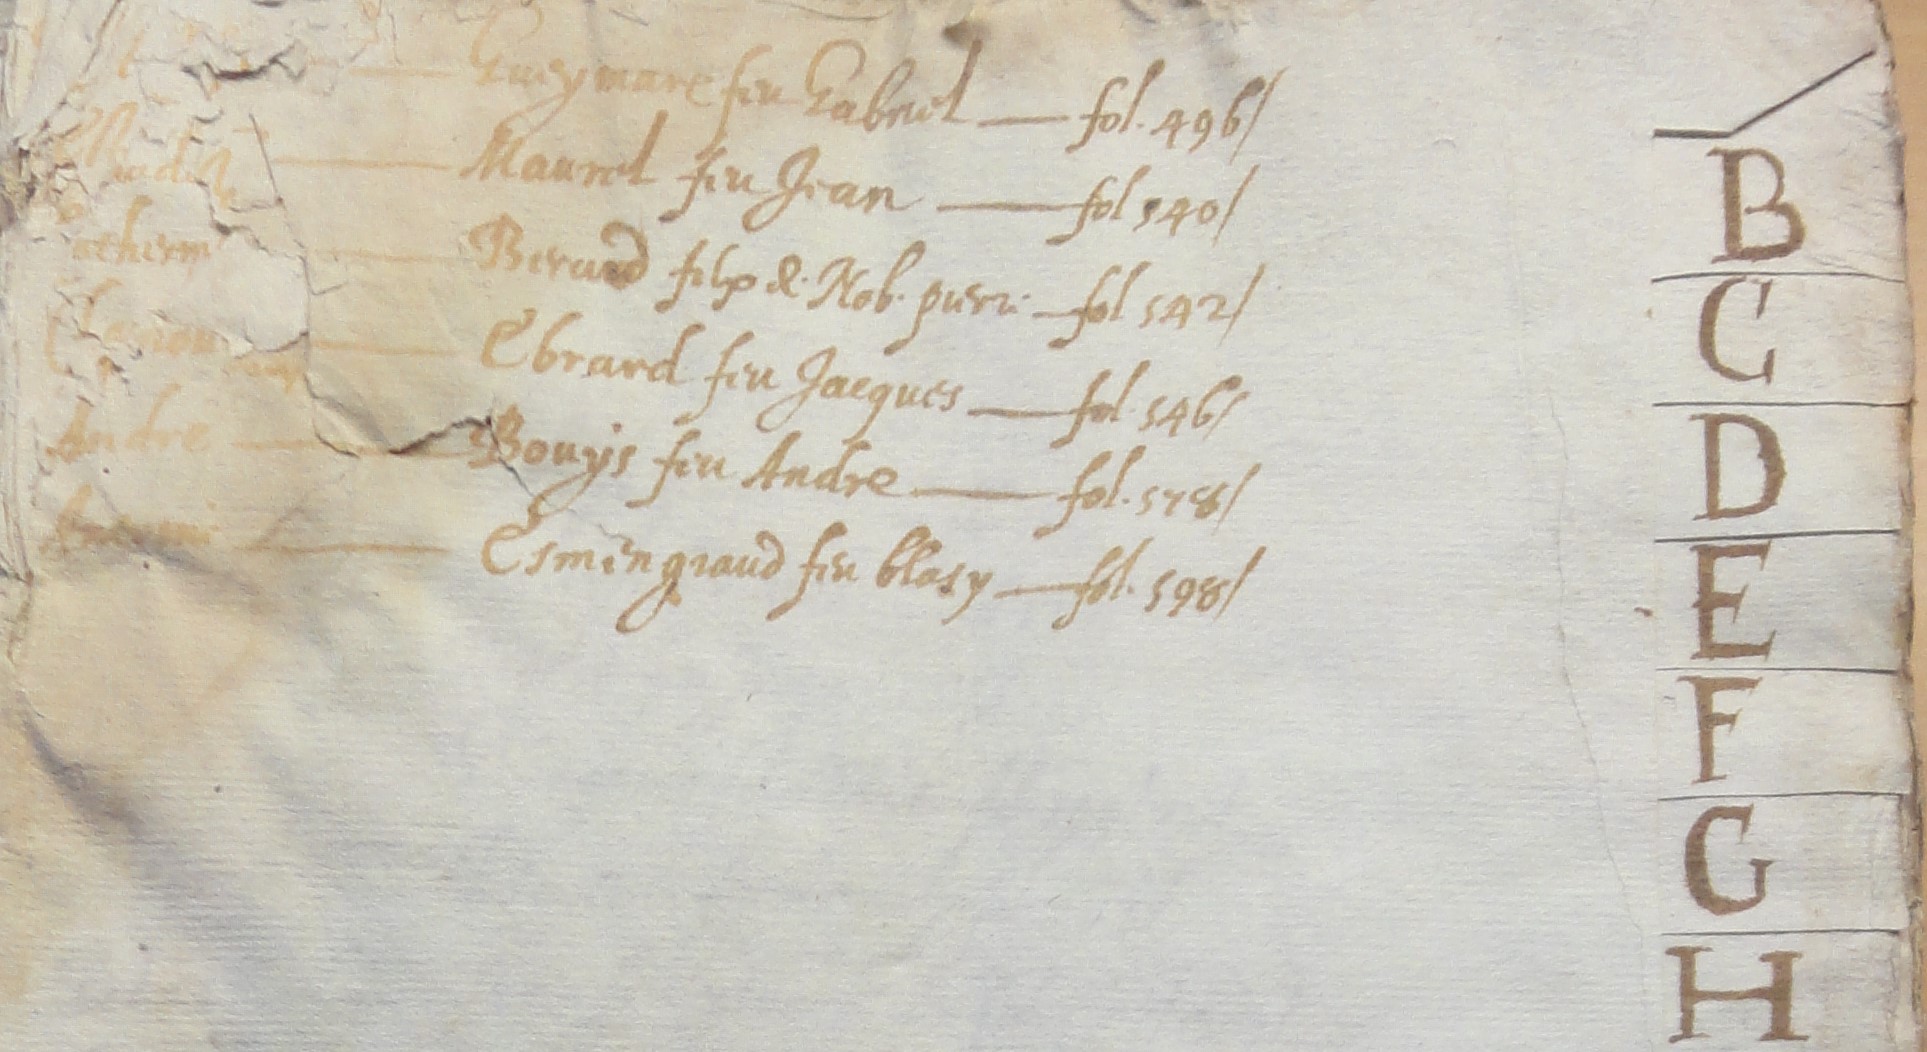 Gueymare feu Gabriel — fol. 496/
Maurel feu Jean — fol 540/
Beraud filz & Nob. — fol 542/
Ebrard feu Jacques — fol. 546/
Andre — Bouys feu Andre — fol. 578/
Esmengiaud feu blasy — fol. 598/
B
C
D
E
F
G
H